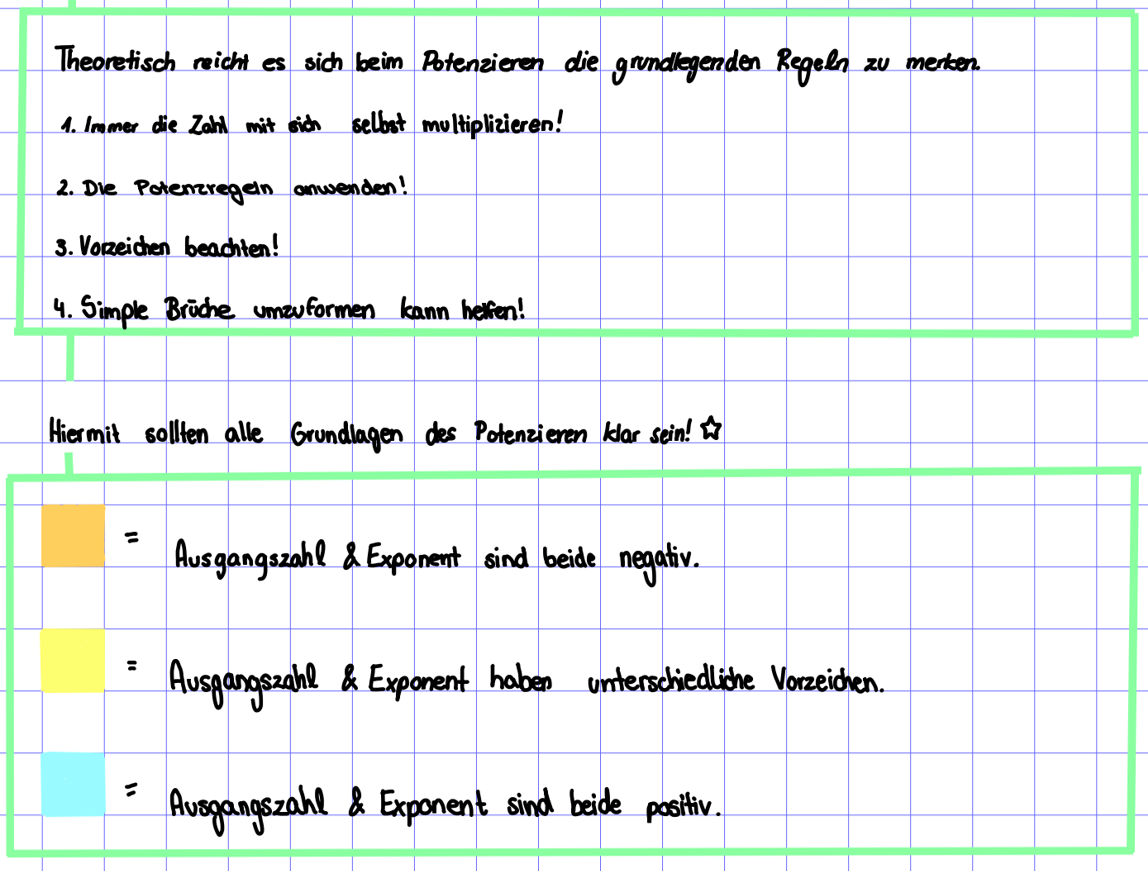 Theoretisch reicht es sich beim Potenzieren die grundlegenden Regeln zu merken.
1. Immer die Zahl mit sich selbst multiplizieren!
2. Die Potenzregeln anwenden!
3. Vorzeichen beachten!
4. Simple Brüche umzuformen kann helfen!
Hiermit sollten alle Grundlagen des Potenzieren klar sein! ☆
= Ausgangszahl & Exponent sind beide negativ.
= Ausgangszahl & Exponent haben unterschiedliche Vorzeichen.
= Ausgangszahl & Exponent sind beide positiv.